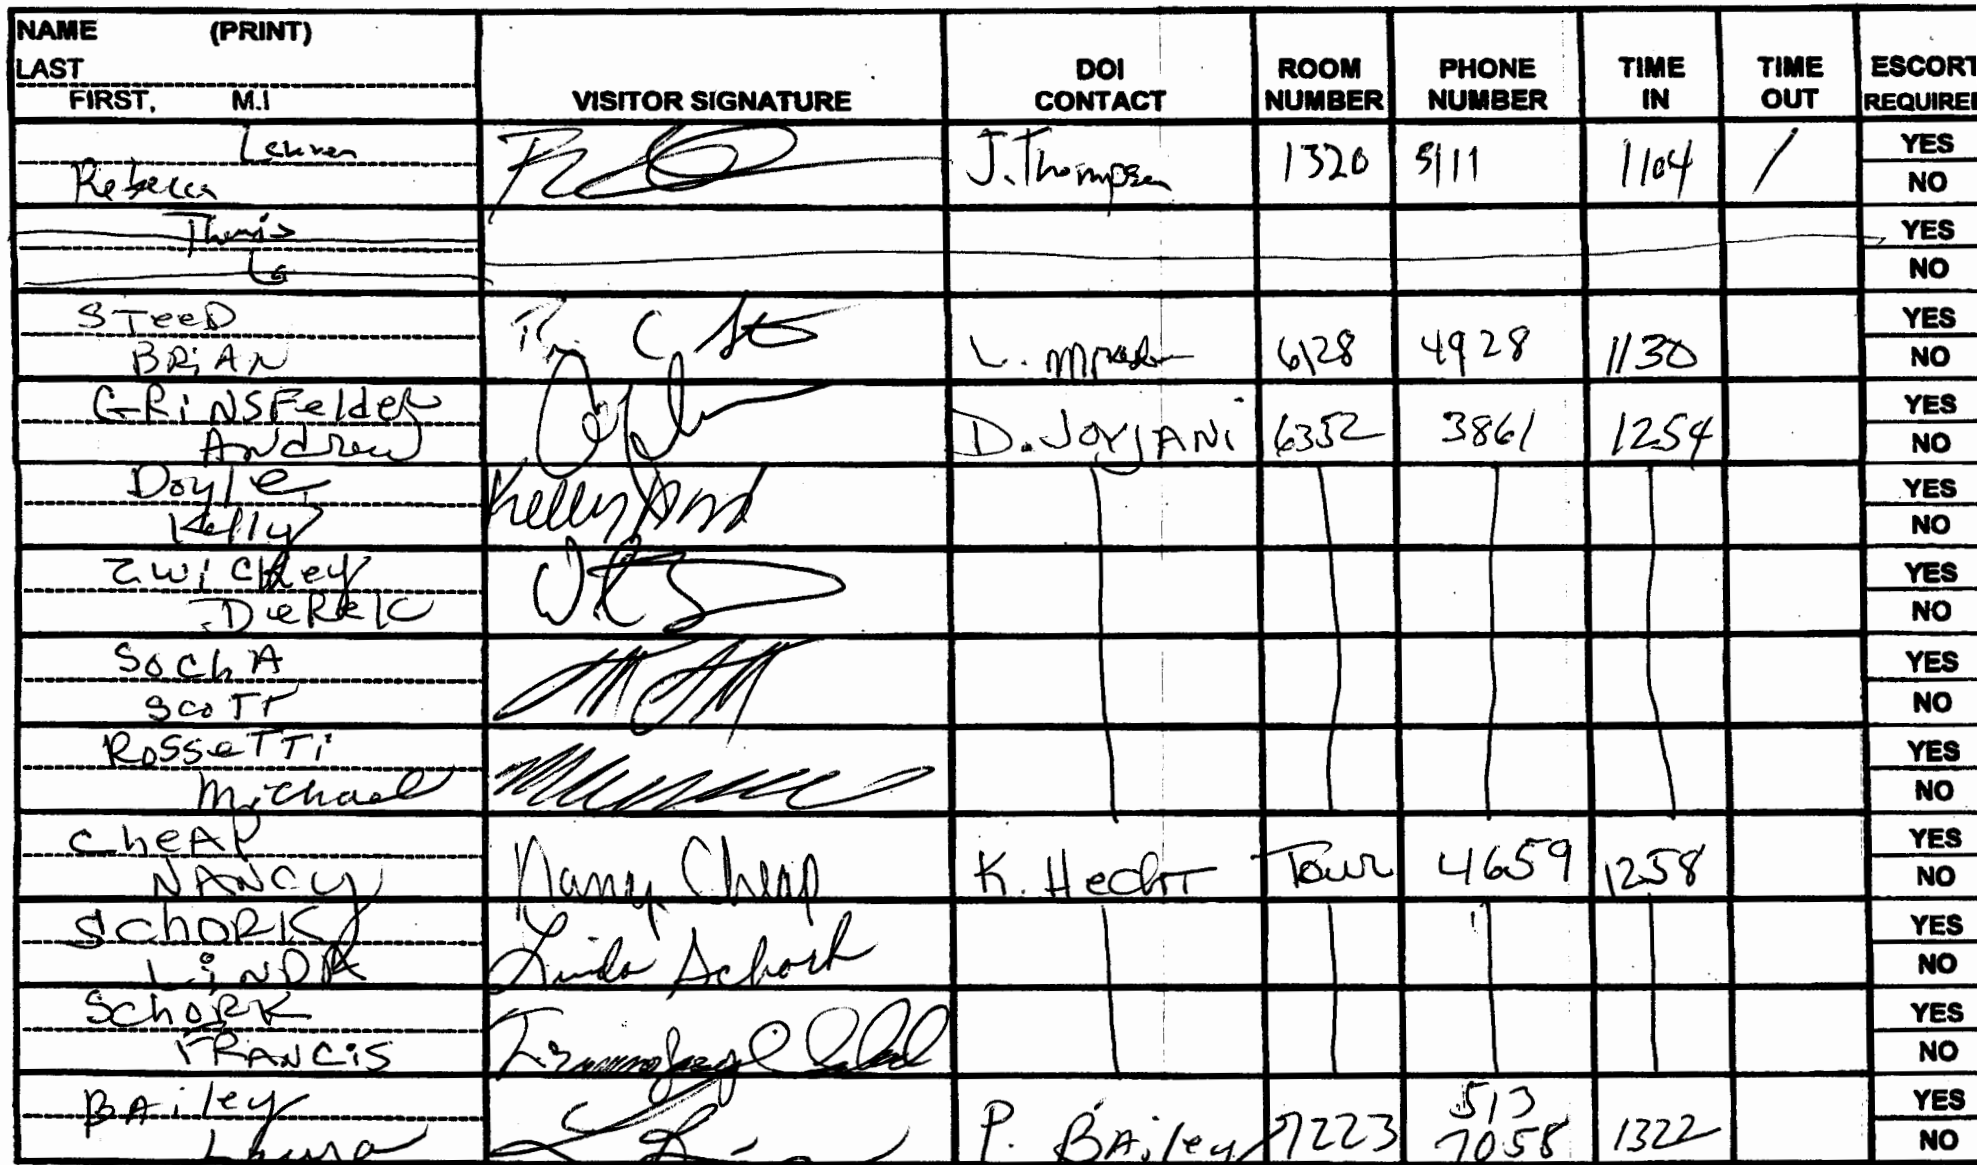 NAME (PRINT)
LAST
FIRST, M.I
VISITOR SIGNATURE
DOI CONTACT
ROOM NUMBER
PHONE NUMBER
TIME IN
TIME OUT
ESCORT REQUIRED
Rebecca
J. Thompson 1320 5111 1104 /
YES
NO
YES
NO
STeeD
BRiAN
L. 6128 4928 1130
YES
NO
GRiNSFelder
Andrew
D. JOYJANi 6352 3861 1254
YES
NO
Doyle
Kelly
YES
NO
Zwickey
DieRek
YES
NO
SochA
ScoTT
YES
NO
RosseTTi
Michael
YES
NO
CheAP
NANCY
Nancy Cheap
K. Hecht Tour 4659 1258
YES
NO
SchoRK
LiNDA
Linda Schork
YES
NO
SchoRK
FRANCiS
YES
NO
BAiley
Laura
P. BAiley 7223 513 7058 1322
YES
NO